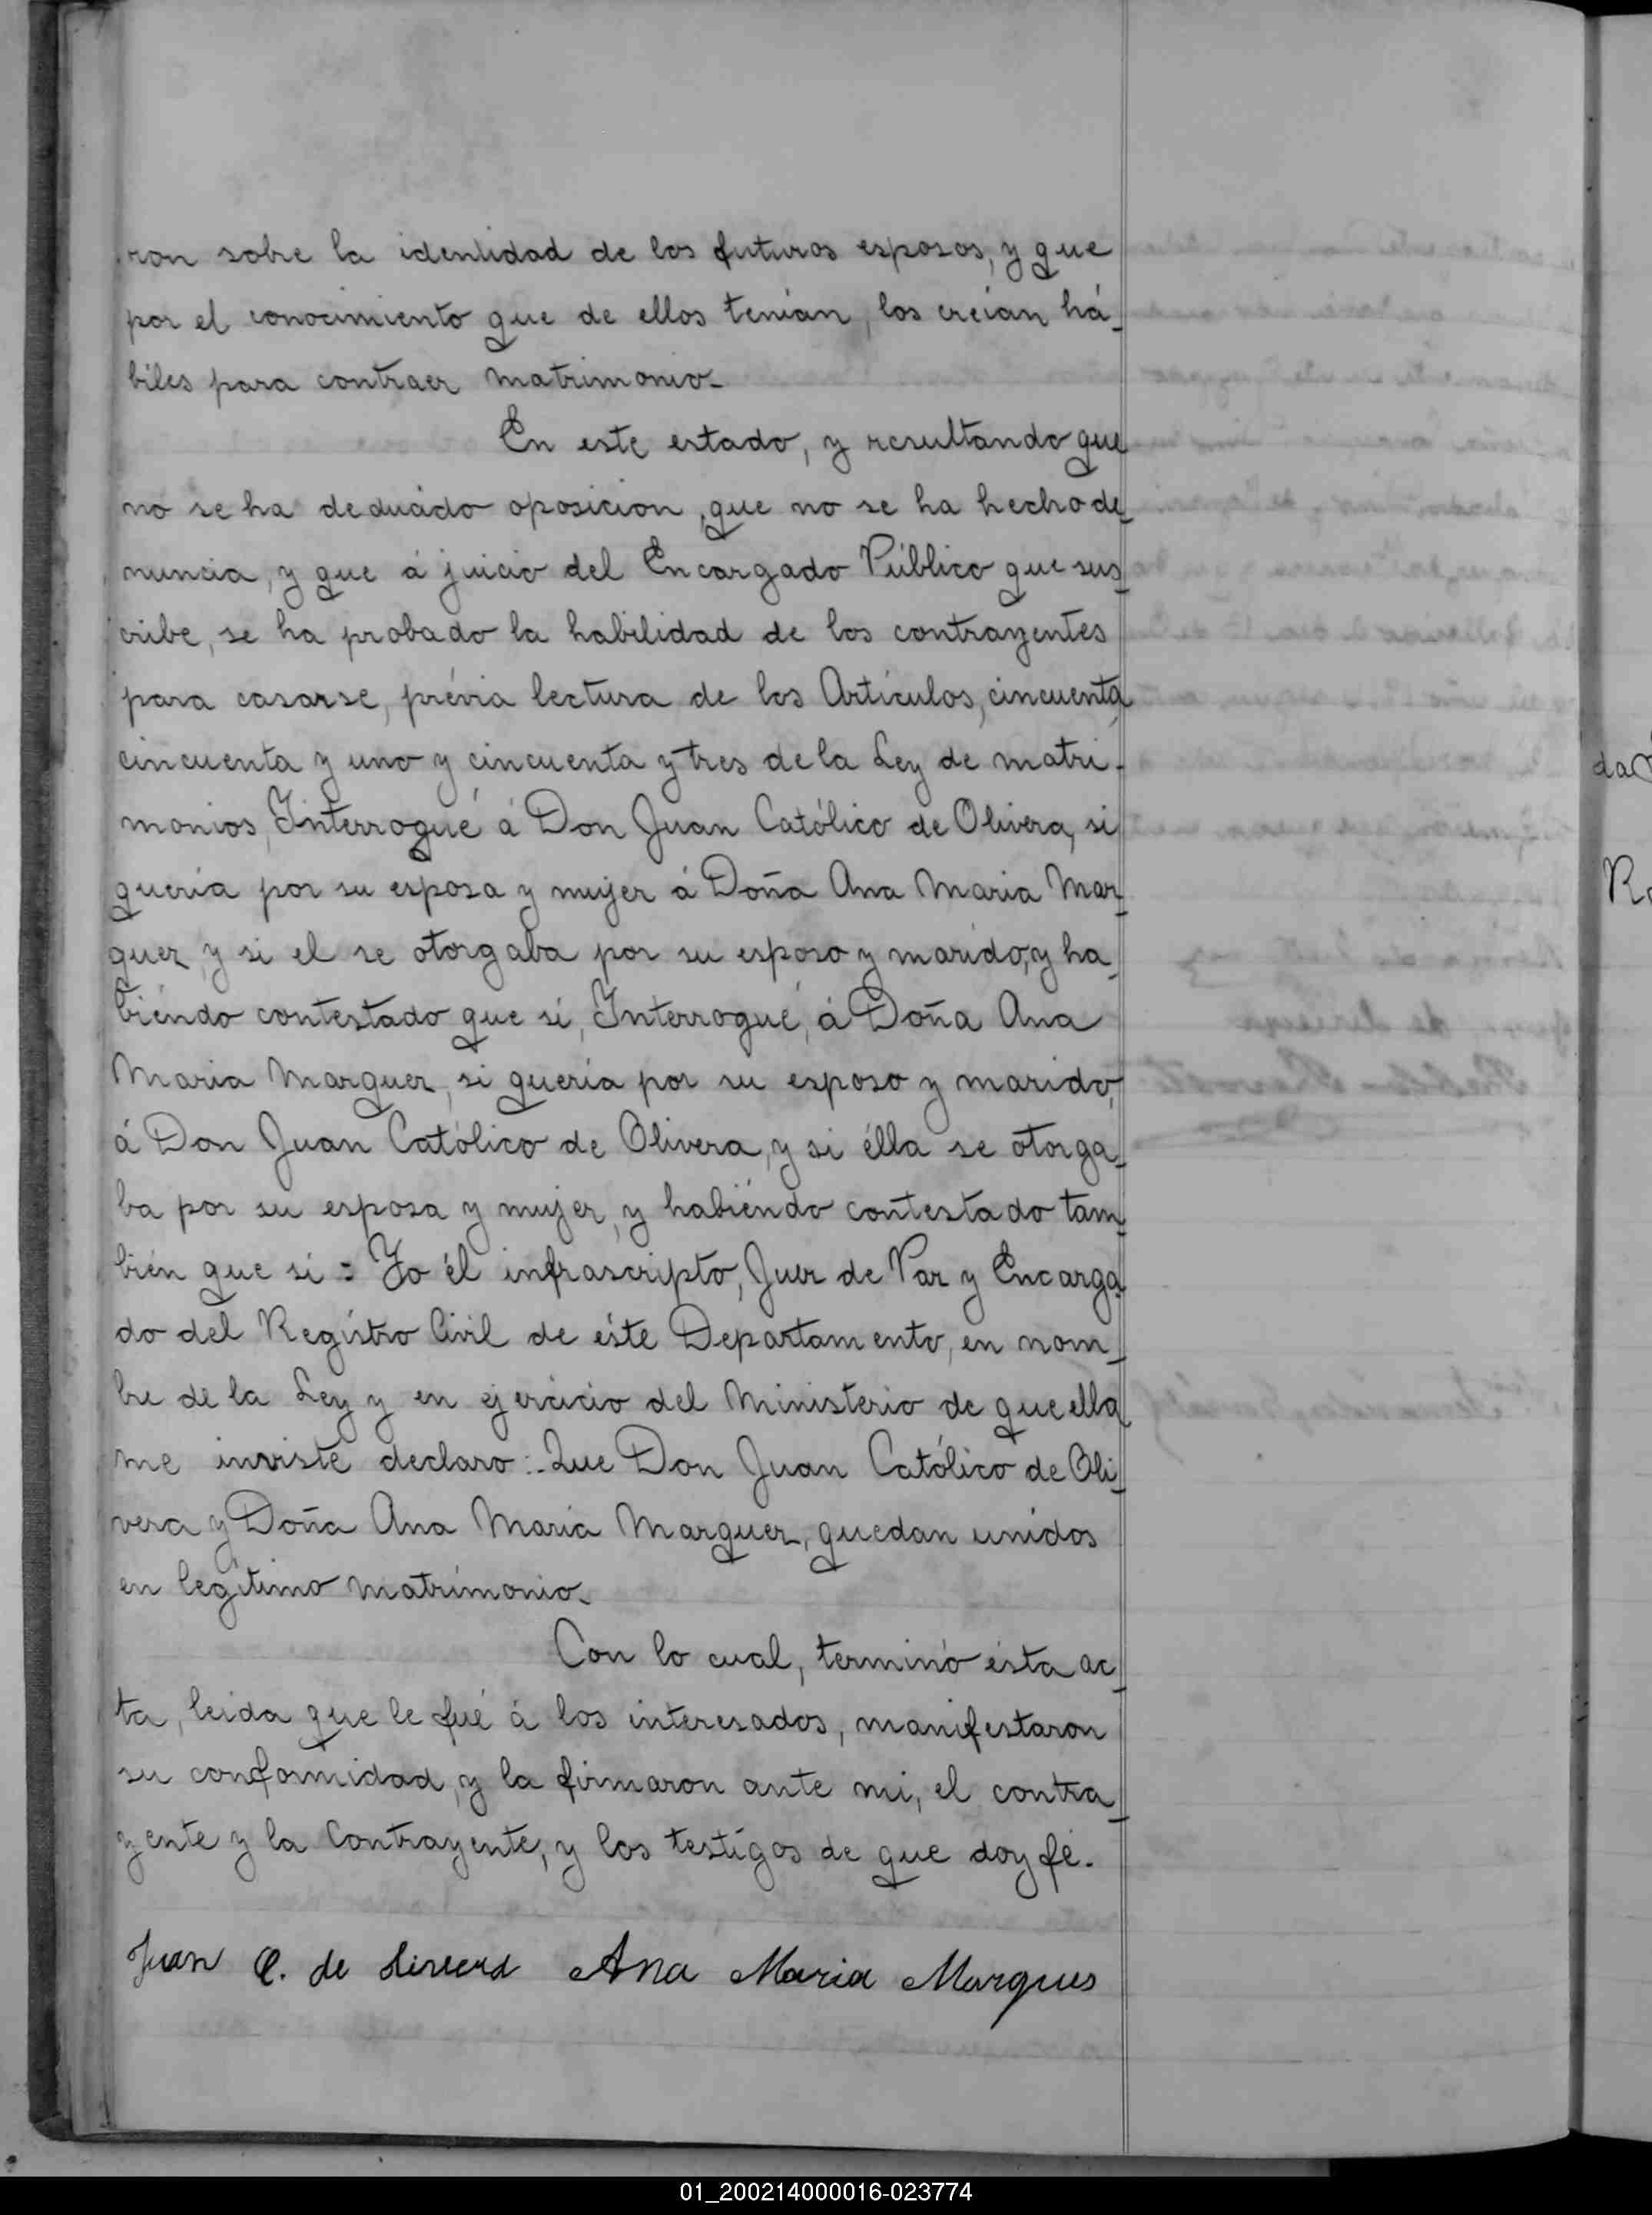 ron sobre la identidad de los futuros esposos, y que
por el conocimiento que de ellos tenían, los creían há-
biles para contraer matrimonio-
En este estado, y resultando que
no se ha deducido oposicion, que no se ha hecho de-
nuncia, y que á juicio del Encargado Público que sus-
cribe, se ha probado la habilidad de los contrayentes
para casarse, prévia lectura de los Artículos, cincuenta,
cincuenta y uno y cincuenta y tres de la Ley de matri-
monios, Interrogué á Don Juan Católico de Olivera, si
quería por su esposa y mujer á Doña Ana Maria Mar-
quez, y si el se otorgaba por su esposo y marido, y ha-
biéndo contestado que si, Interrogué, á Doña Ana
Maria Marquez, si quería por su esposo y marido,
á Don Juan Católico de Olivera, y si élla se otorga-
ba por su esposa y mujer, y habiéndo contestado tam-
bién que si = Yo él infrascripto, Juez de Paz y Encarga-
do del Regístro Civil de éste Departamento, en nom-
bre de la Ley y en ejercicio del Ministerio de que ella
me inviste declaro:- Que Don Juan Católico de Oli-
vera y Doña Ana Maria Marquez, quedan unidos
en legítimo matrimonio-
Con lo cual, terminó ésta ac-
ta, leida que le fué á los interesados, manifestaron
su conformidad, y la firmaron ante mi, el contra-
yente y la Contrayente, y los testígos de que doy fé.
Juan C. de Ana Maria Marques
da
R
01_200214000016-023774